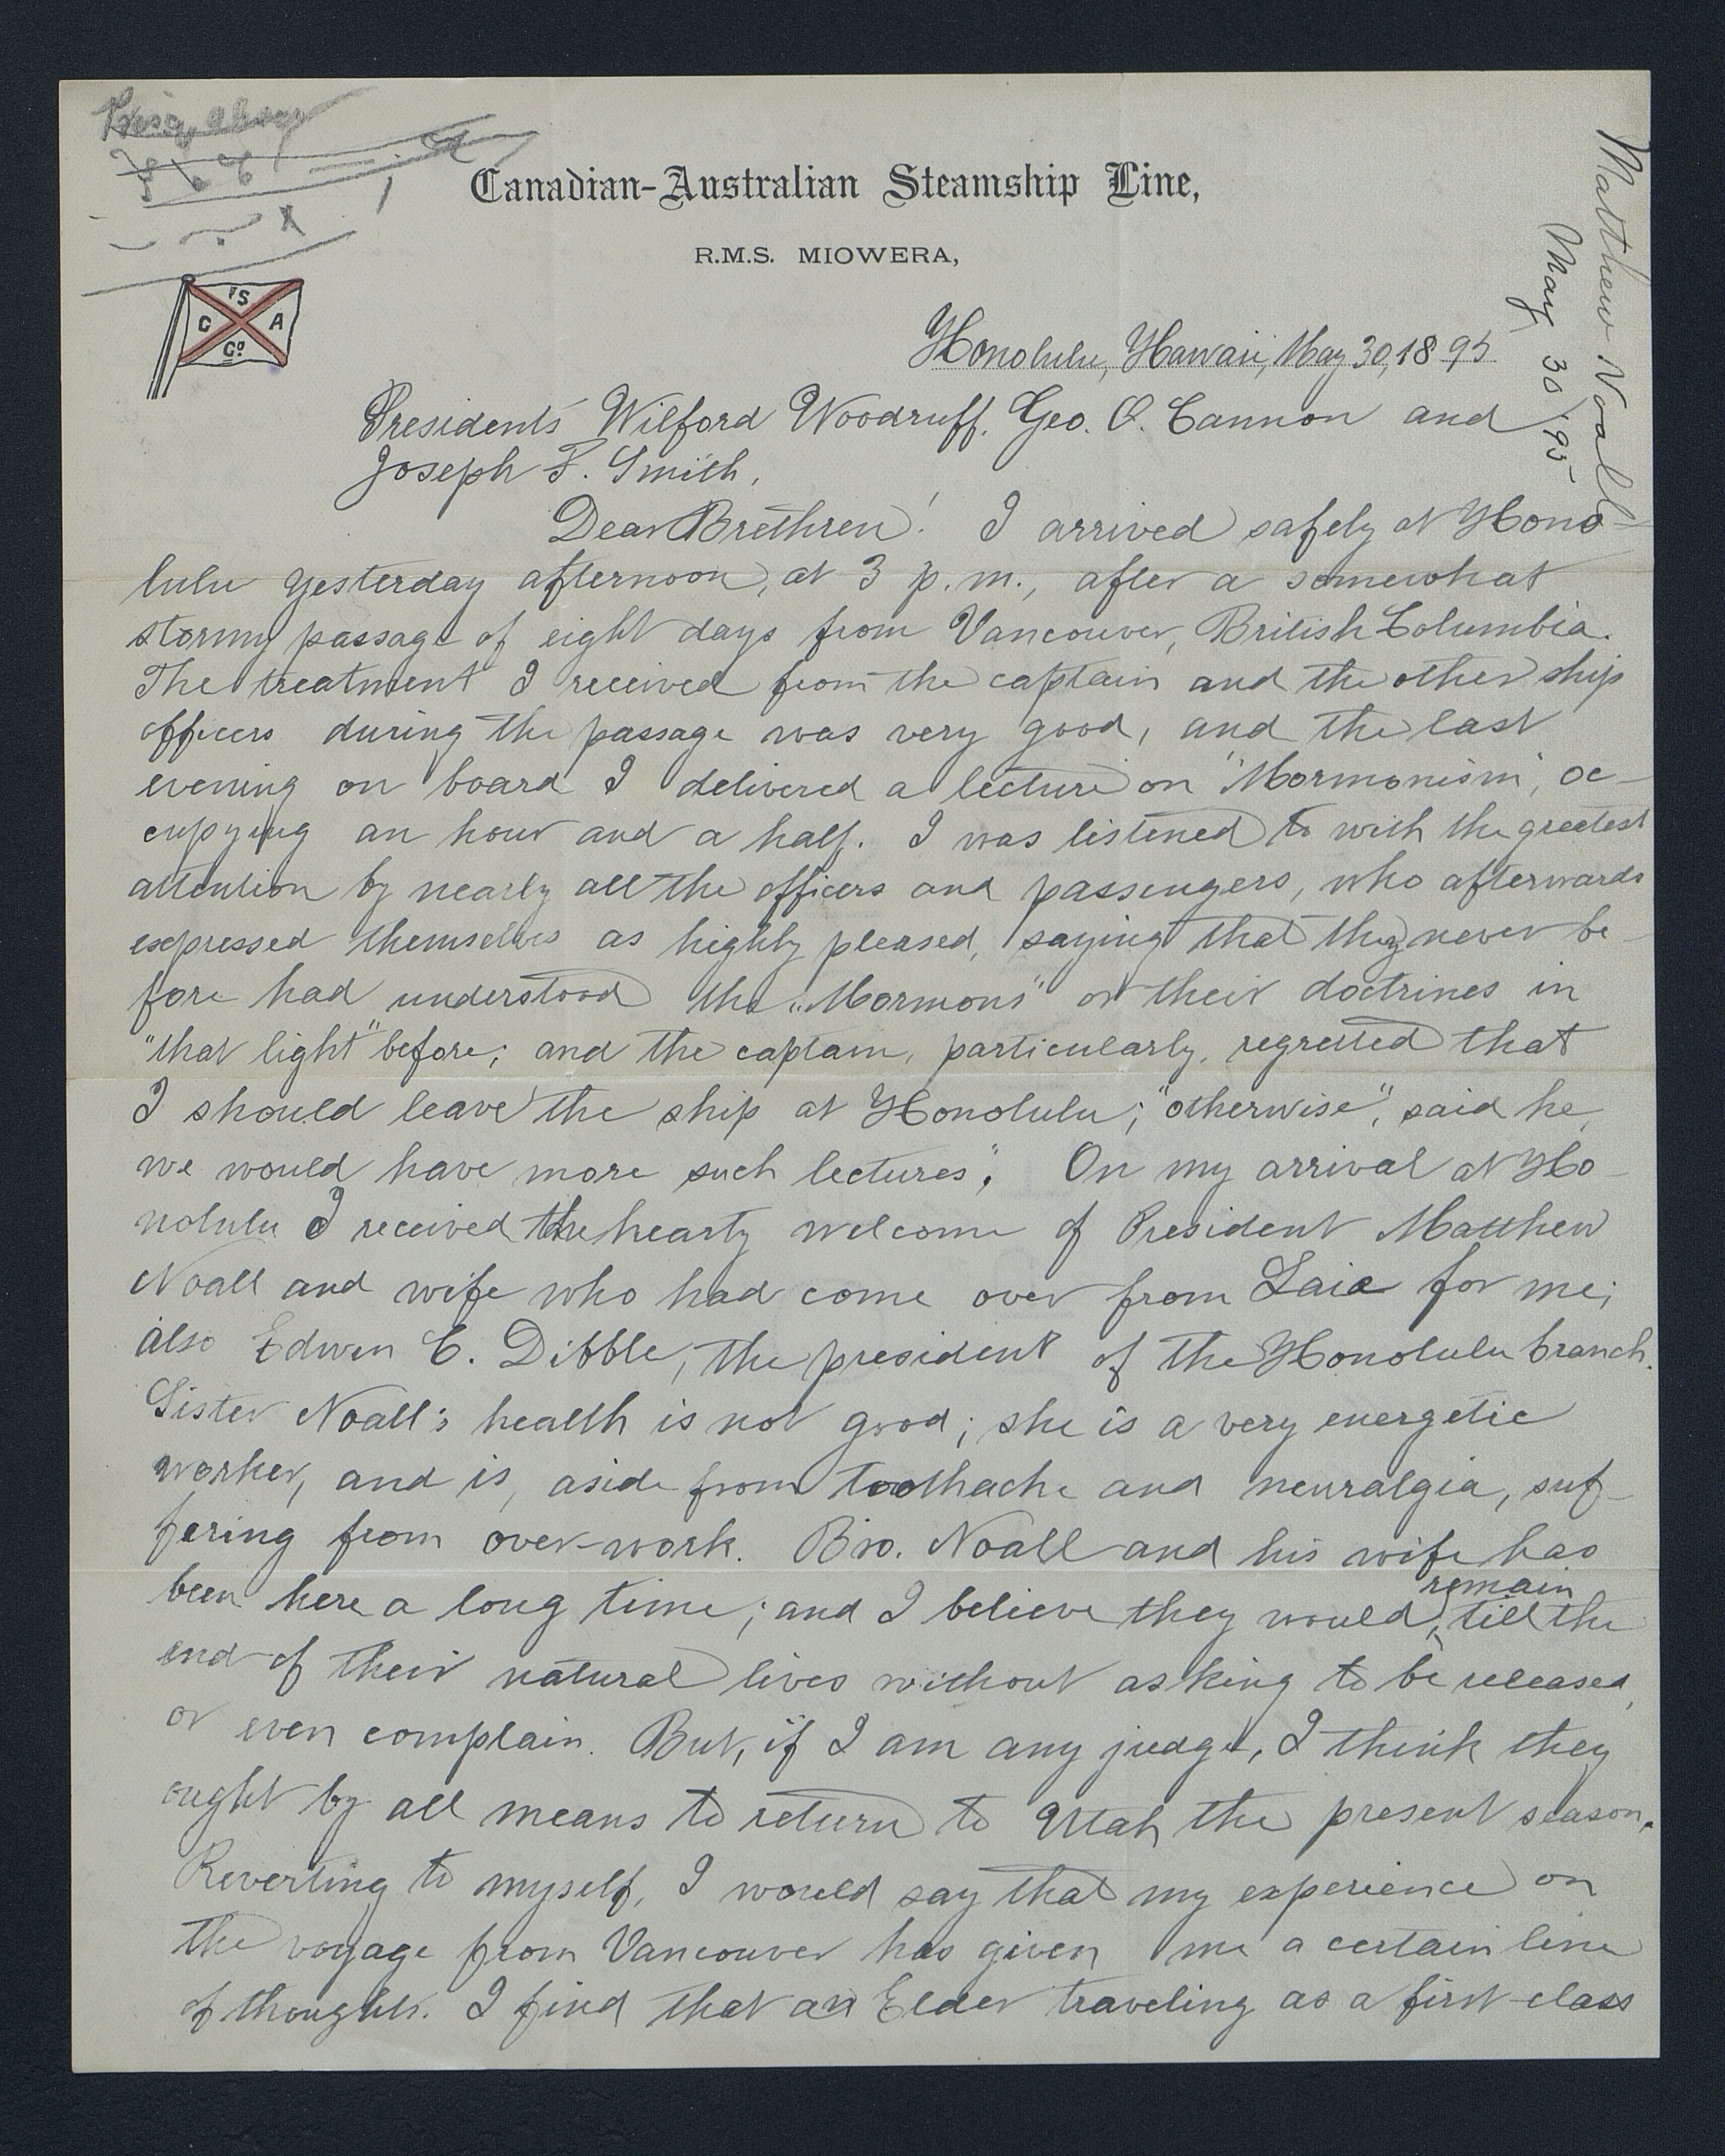 Canadian-Australian Steamship Line,
R.M.S. MIOWERA,
S
C A
Co
Matthew Noall
May 30/95
Honolulu, Hawaii, May 30, 1895
Presidents Wilford Woodruff, Geo. Q. Cannon and
Joseph F. Smith,
Dear Brethren! I arrived safely at Hono-
lulu yesterday afternoon, at 3 p.m., after a somewhat
stormy passage of eight days from Vancouver, British Columbia.
The treatment I received from the captain and the other ship
officers during the passage was very good, and the last
evening on board I delivered a lecture on "Mormonism", oc-
cupying an hour and a half. I was listened to with the greatest
attention by nearly all the officers and passengers, who afterwards
expressed themselves as highly pleased, saying that they never be-
fore had understood the "Mormons" or their doctrines in
"that light" before; and the captain, particularly, regretted that
I should leave the ship at Honolulu; "otherwise", said he,
we would have more such lectures". On my arrival at Ho-
nolulu I received the hearty welcome of President Matthew
Noall and wife who had come over from Laie for me;
also Edwin C. Dibble, the president of the Honolulu branch.
Sister Noall's health is not good; she is a very energetic
worker, and is, aside from toothache and neuralgia, suf-
fering from over-work. Bro. Noall and his wife has
been here a long time; and I believe they would remain till the
end of their natural lives without asking to be released,
or even complain. But, if I am any judge, I think they
ought by all means to return to Utah the present season.
Reverting to myself, I would say that my experience on
the voyage from Vancouver has given me a certain line
of thoughts. I find that an Elder traveling as a first-class